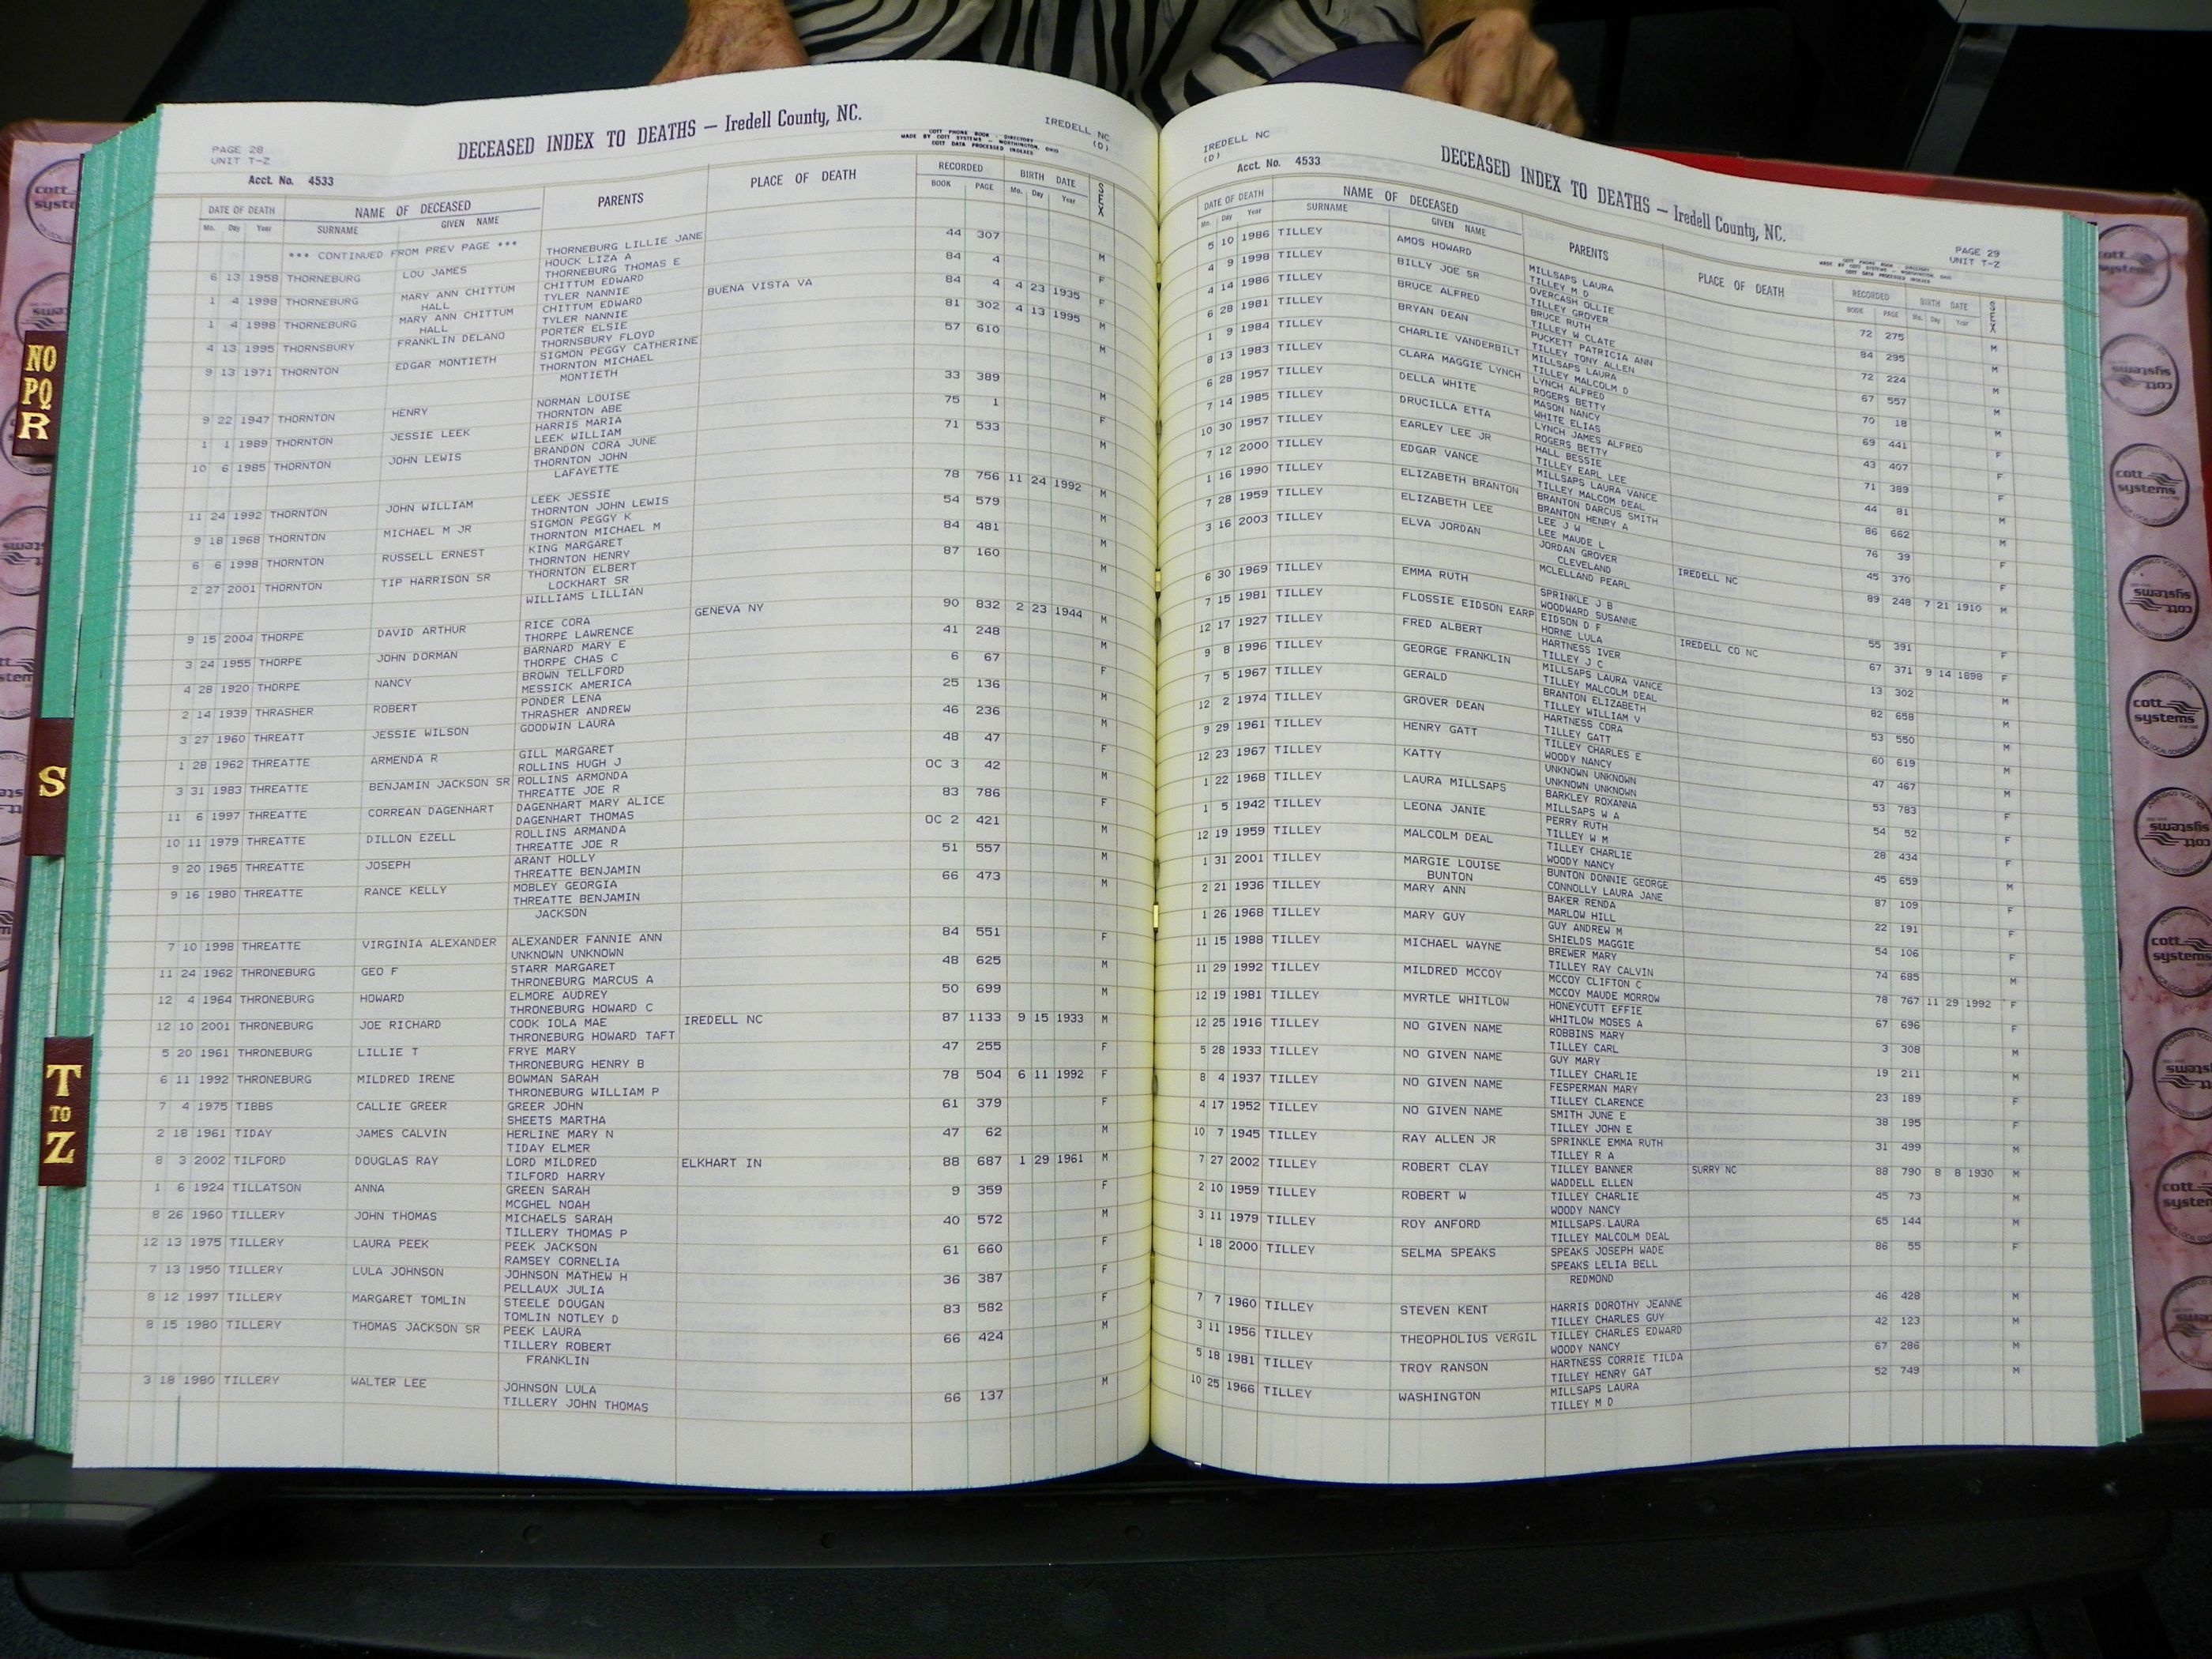 PAGE 28
UNIT T-Z
DECEASED INDEX TO DEATHS — Iredell County, NC.
COTT PHONE BOOK - DIRECTORY
MADE BY COTT SYSTEMS — WORTHINGTON, OHIO
COTT DATA PROCESSED INDEXES
IREDELL NC
(D)
Acct. No. 4533
DATE OF DEATH NAME OF DECEASED PARENTS PLACE OF DEATH RECORDED BIRTH DATE SEX
Mo. Day Year SURNAME GIVEN NAME BOOK PAGE Mo. Day Year
*** CONTINUED FROM PREV PAGE *** THORNEBURG LILLIE JANE
6 13 1958 THORNEBURG LOU JAMES HOUCK LIZA A 44 307 M
THORNEBURG THOMAS E
1 4 1998 THORNEBURG MARY ANN CHITTUM CHITTUM EDWARD 84 4 F
HALL TYLER NANNIE
1 4 1998 THORNEBURG MARY ANN CHITTUM CHITTUM EDWARD BUENA VISTA VA 84 4 4 23 1935 F
HALL TYLER NANNIE
4 13 1995 THORNSBURY FRANKLIN DELANO PORTER ELSIE 81 302 4 13 1995 M
THORNSBURY FLOYD
9 13 1971 THORNTON EDGAR MONTIETH SIGMON PEGGY CATHERINE 57 610 M
THORNTON MICHAEL
MONTIETH
9 22 1947 THORNTON HENRY NORMAN LOUISE 33 389 M
THORNTON ABE
1 1 1989 THORNTON JESSIE LEEK HARRIS MARIA 75 1 F
LEEK WILLIAM
10 6 1985 THORNTON JOHN LEWIS BRANDON CORA JUNE 71 533 M
THORNTON JOHN
LAFAYETTE
11 24 1992 THORNTON JOHN WILLIAM LEEK JESSIE 78 756 11 24 1992 M
THORNTON JOHN LEWIS
9 18 1968 THORNTON MICHAEL M JR SIGMON PEGGY K 54 579 M
THORNTON MICHAEL M
6 6 1998 THORNTON RUSSELL ERNEST KING MARGARET 84 481 M
THORNTON HENRY
2 27 2001 THORNTON TIP HARRISON SR THORNTON ELBERT 87 160 M
LOCKHART SR
WILLIAMS LILLIAN
9 15 2004 THORPE DAVID ARTHUR RICE CORA GENEVA NY 90 832 2 23 1944 M
THORPE LAWRENCE
3 24 1955 THORPE JOHN DORMAN BARNARD MARY E 41 248 M
THORPE CHAS C
4 28 1920 THORPE NANCY BROWN TELLFORD 6 67 F
MESSICK AMERICA
2 14 1939 THRASHER ROBERT PONDER LENA 25 136 M
THRASHER ANDREW
3 27 1960 THREATT JESSIE WILSON GOODWIN LAURA 46 236 M
1 28 1962 THREATTE ARMENDA R GILL MARGARET 48 47 F
ROLLINS HUGH J
3 31 1983 THREATTE BENJAMIN JACKSON SR ROLLINS ARMONDA OC 3 42 M
THREATTE JOE R
11 6 1997 THREATTE CORREAN DAGENHART DAGENHART MARY ALICE 83 786 F
DAGENHART THOMAS
10 11 1979 THREATTE DILLON EZELL ROLLINS ARMANDA OC 2 421 M
THREATTE JOE R
9 20 1965 THREATTE JOSEPH ARANT HOLLY 51 557 M
THREATTE BENJAMIN
9 16 1980 THREATTE RANCE KELLY MOBLEY GEORGIA 66 473 M
THREATTE BENJAMIN
JACKSON
7 10 1998 THREATTE VIRGINIA ALEXANDER ALEXANDER FANNIE ANN 84 551 F
UNKNOWN UNKNOWN
11 24 1962 THRONEBURG GEO F STARR MARGARET 48 625 M
THRONEBURG MARCUS A
12 4 1964 THRONEBURG HOWARD ELMORE AUDREY 50 699 M
THRONEBURG HOWARD C
12 10 2001 THRONEBURG JOE RICHARD COOK IOLA MAE IREDELL NC 87 1133 9 15 1933 M
THRONEBURG HOWARD TAFT
5 20 1961 THRONEBURG LILLIE T FRYE MARY 47 255 F
THRONEBURG HENRY B
6 11 1992 THRONEBURG MILDRED IRENE BOWMAN SARAH 78 504 6 11 1992 F
THRONEBURG WILLIAM P
7 4 1975 TIBBS CALLIE GREER GREER JOHN 61 379 F
SHEETS MARTHA
2 18 1961 TIDAY JAMES CALVIN HERLINE MARY N 47 62 M
TIDAY ELMER
8 3 2002 TILFORD DOUGLAS RAY LORD MILDRED ELKHART IN 88 687 1 29 1961 M
TILFORD HARRY
1 6 1924 TILLATSON ANNA GREEN SARAH 9 359 F
MCGHEL NOAH
8 26 1960 TILLERY JOHN THOMAS MICHAELS SARAH 40 572 M
TILLERY THOMAS P
12 13 1975 TILLERY LAURA PEEK PEEK JACKSON 61 660 F
RAMSEY CORNELIA
7 13 1950 TILLERY LULA JOHNSON JOHNSON MATHEW H 36 387 F
PELLAUX JULIA
8 12 1997 TILLERY MARGARET TOMLIN STEELE DOUGAN 83 582 F
TOMLIN NOTLEY D
8 15 1980 TILLERY THOMAS JACKSON SR PEEK LAURA 66 424 M
TILLERY ROBERT
FRANKLIN
3 18 1980 TILLERY WALTER LEE JOHNSON LULA 66 137 M
TILLERY JOHN THOMAS
IREDELL NC
(D)
Acct. No. 4533
DECEASED INDEX TO DEATHS — Iredell County, NC.
PAGE 29
UNIT T-Z
DATE OF DEATH NAME OF DECEASED PARENTS PLACE OF DEATH RECORDED BIRTH DATE SEX
Mo. Day Year SURNAME GIVEN NAME BOOK PAGE Mo. Day Year
5 10 1986 TILLEY AMOS HOWARD MILLSAPS LAURA 72 275 M
TILLEY M D
4 9 1998 TILLEY BILLY JOE SR OVERCASH OLLIE 84 295 M
TILLEY GROVER
4 14 1986 TILLEY BRUCE ALFRED BRUCE RUTH 72 224 M
TILLEY W CLATE
6 28 1981 TILLEY BRYAN DEAN PUCKETT PATRICIA ANN 67 557 M
TILLEY TONY ALLEN
1 9 1984 TILLEY CHARLIE VANDERBILT MILLSAPS LAURA 70 18 M
TILLEY MALCOLM D
8 13 1983 TILLEY CLARA MAGGIE LYNCH LYNCH ALFRED 69 441 F
ROGERS BETTY
6 28 1957 TILLEY DELLA WHITE MASON NANCY 43 407 F
WHITE ELIAS
7 14 1985 TILLEY DRUCILLA ETTA LYNCH JAMES ALFRED 71 389 F
ROGERS BETTY
10 30 1957 TILLEY EARLEY LEE JR HALL BESSIE 44 81 M
TILLEY EARL LEE
7 12 2000 TILLEY EDGAR VANCE MILLSAPS LAURA VANCE 86 662 M
TILLEY MALCOM DEAL
1 16 1990 TILLEY ELIZABETH BRANTON BRANTON DARCUS SMITH 76 39 F
BRANTON HENRY A
7 28 1959 TILLEY ELIZABETH LEE LEE J W 45 370 F
LEE MAUDE L
3 16 2003 TILLEY ELVA JORDAN JORDAN GROVER IREDELL NC 89 248 7 21 1910 M
CLEVELAND
MCLELLAND PEARL
6 30 1969 TILLEY EMMA RUTH SPRINKLE J B 55 391 F
WOODWARD SUSANNE
7 15 1981 TILLEY FLOSSIE EIDSON EARP EIDSON D F IREDELL CO NC 67 371 9 14 1898 F
HORNE LULA
12 17 1927 TILLEY FRED ALBERT HARTNESS IVER 13 302 M
TILLEY J C
9 8 1996 TILLEY GEORGE FRANKLIN MILLSAPS LAURA VANCE 82 658 M
TILLEY MALCOLM DEAL
7 5 1967 TILLEY GERALD BRANTON ELIZABETH 53 550 M
TILLEY WILLIAM V
12 2 1974 TILLEY GROVER DEAN HARTNESS CORA 60 619 M
TILLEY GATT
9 29 1961 TILLEY HENRY GATT TILLEY CHARLES E 47 467 M
WOODY NANCY
12 23 1967 TILLEY KATTY UNKNOWN UNKNOWN 53 783 F
UNKNOWN UNKNOWN
1 22 1968 TILLEY LAURA MILLSAPS BARKLEY ROXANNA 54 52 F
MILLSAPS W A
1 5 1942 TILLEY LEONA JANIE PERRY RUTH 28 434 F
TILLEY W M
12 19 1959 TILLEY MALCOLM DEAL TILLEY CHARLIE 45 659 M
WOODY NANCY
1 31 2001 TILLEY MARGIE LOUISE BUNTON DONNIE GEORGE 87 109 F
BUNTON CONNOLLY LAURA JANE
2 21 1936 TILLEY MARY ANN BAKER RENDA 22 191 F
MARLOW HILL
1 26 1968 TILLEY MARY GUY GUY ANDREW M 54 106 F
SHIELDS MAGGIE
11 15 1988 TILLEY MICHAEL WAYNE BREWER MARY 74 685 M
TILLEY RAY CALVIN
11 29 1992 TILLEY MILDRED MCCOY MCCOY CLIFTON C 78 767 11 29 1992 F
MCCOY MAUDE MORROW
12 19 1981 TILLEY MYRTLE WHITLOW HONEYCUTT EFFIE 67 696 F
WHITLOW MOSES A
12 25 1916 TILLEY NO GIVEN NAME ROBBINS MARY 3 308 M
TILLEY CARL
5 28 1933 TILLEY NO GIVEN NAME GUY MARY 19 211 M
TILLEY CHARLIE
8 4 1937 TILLEY NO GIVEN NAME FESPERMAN MARY 23 189 F
TILLEY CLARENCE
4 17 1952 TILLEY NO GIVEN NAME SMITH JUNE E 38 195 F
TILLEY JOHN E
10 7 1945 TILLEY RAY ALLEN JR SPRINKLE EMMA RUTH 31 499 M
TILLEY R A
7 27 2002 TILLEY ROBERT CLAY TILLEY BANNER SURRY NC 88 790 8 8 1930 M
WADDELL ELLEN
2 10 1959 TILLEY ROBERT W TILLEY CHARLIE 45 73 M
WOODY NANCY
3 11 1979 TILLEY ROY ANFORD MILLSAPS LAURA 65 144 M
TILLEY MALCOLM DEAL
1 18 2000 TILLEY SELMA SPEAKS SPEAKS JOSEPH WADE 86 55 F
SPEAKS LELIA BELL
REDMOND
7 7 1960 TILLEY STEVEN KENT HARRIS DOROTHY JEANNE 46 428 M
TILLEY CHARLES GUY
3 11 1956 TILLEY THEOPHOLIUS VERGIL TILLEY CHARLES EDWARD 42 123 M
WOODY NANCY
5 18 1981 TILLEY TROY RANSON HARTNESS CORRIE TILDA 67 286 M
TILLEY HENRY GAT
10 25 1966 TILLEY WASHINGTON MILLSAPS LAURA 52 749 M
TILLEY M D
NO
PQ
R
S
T
TO
Z
cott
systems